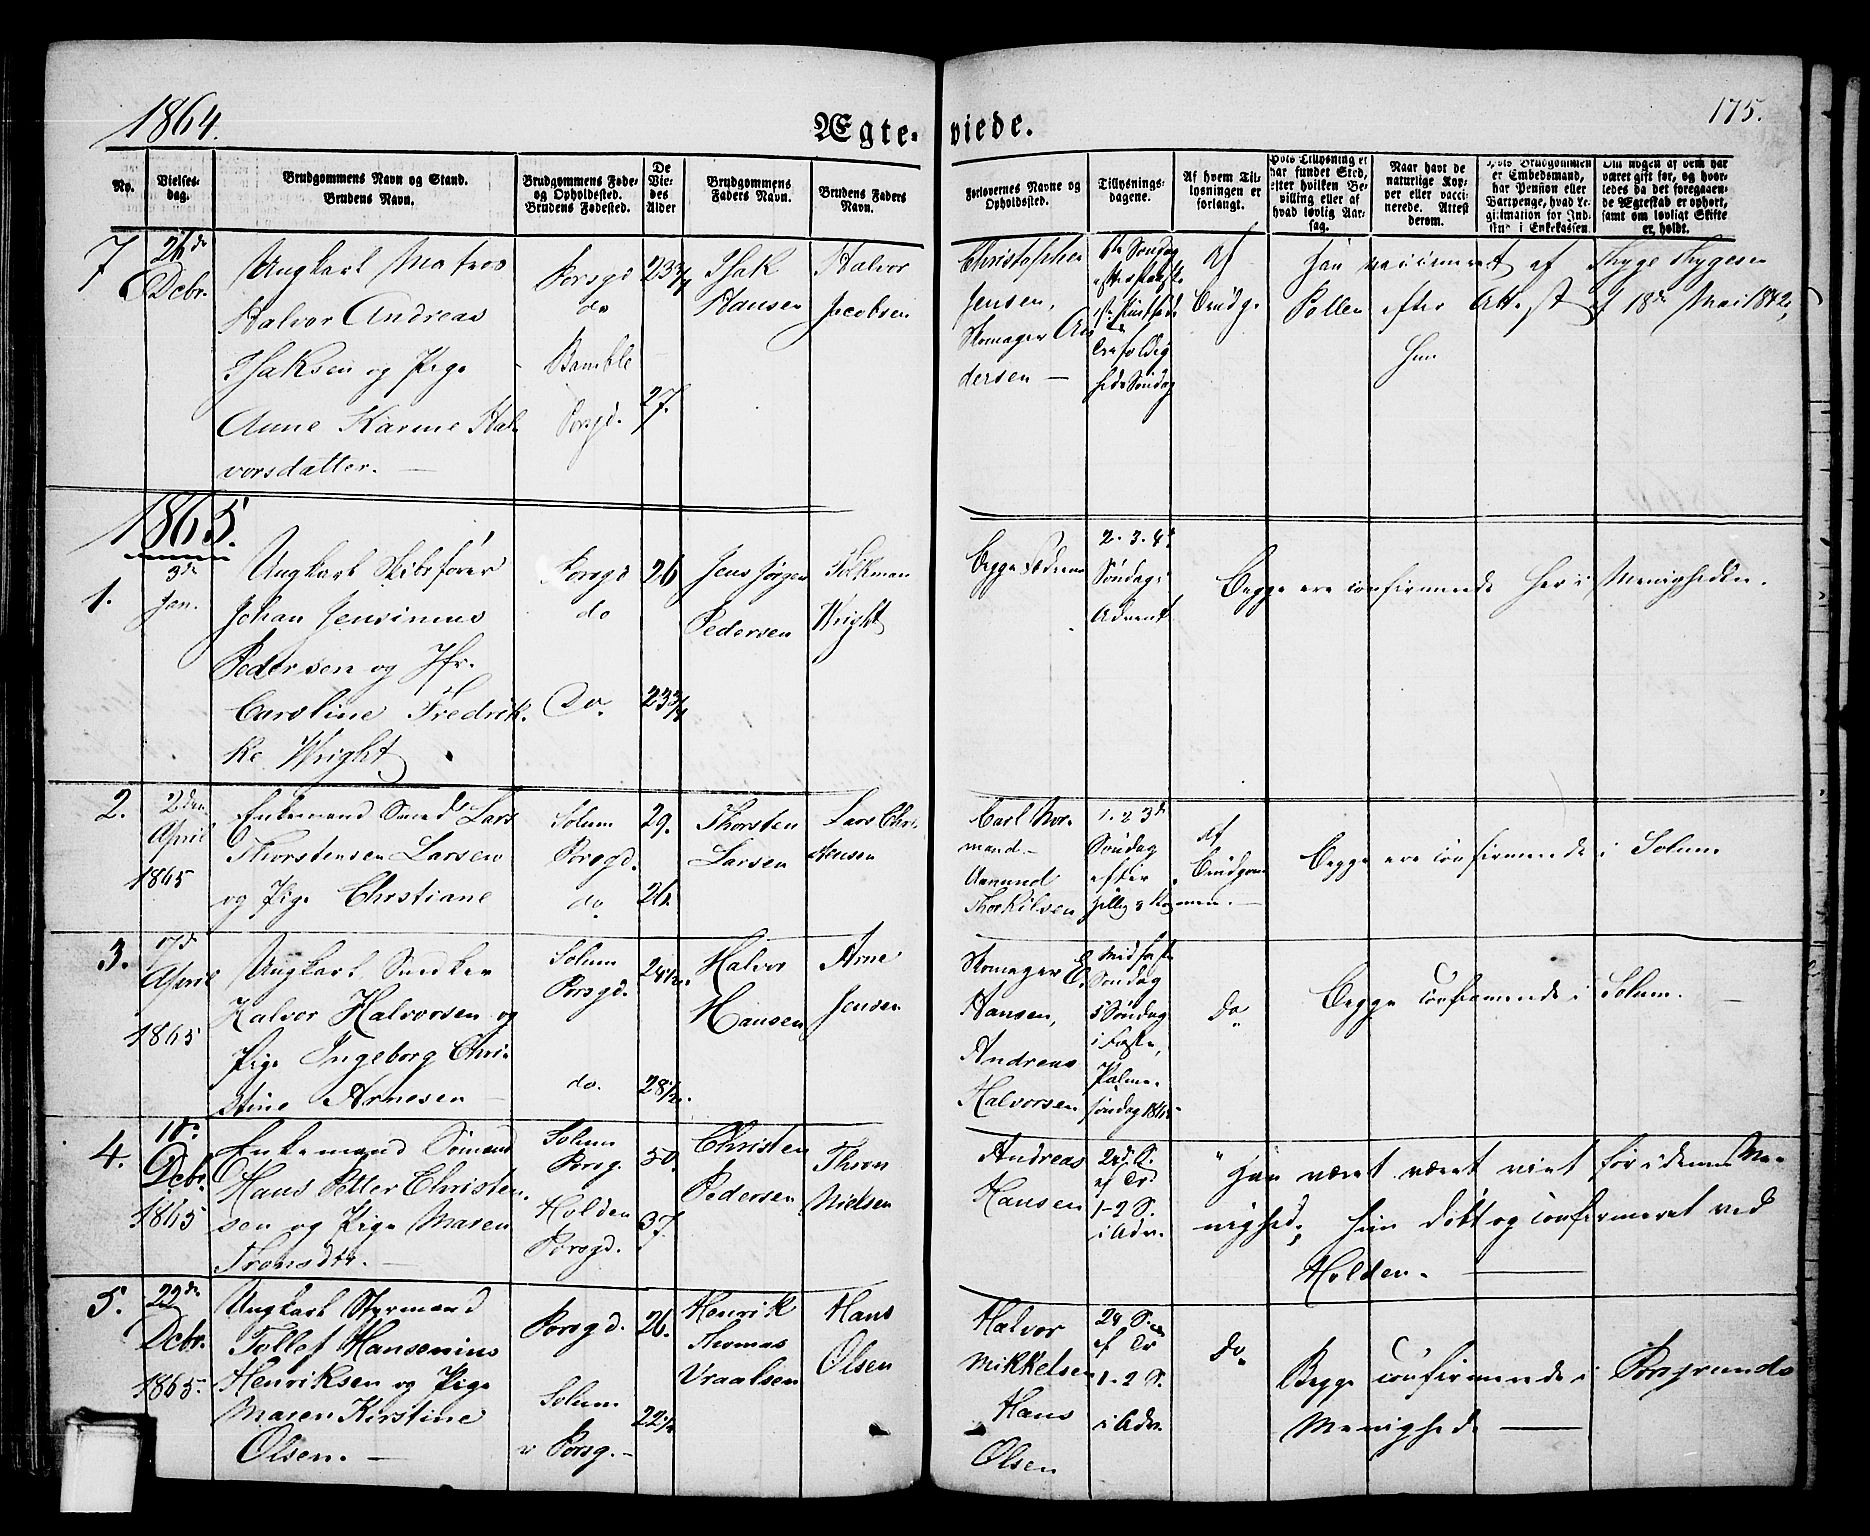 1864.
Ægte-viede.
175.
No.
Vielses-dag.
Brudgommens Navn og Stand.
Brudens Navn.
Brudgommens Føde-
og Opholdssted.
Brudens Fødested.
De
Vie-
des
Alder
Brudgommens
Faders Navn.
Brudens Faders
Navn.
Forlovernes Navne og
Opholdssted.
Tillysnings-
dagene.
Af hvem Til-
lysningen er
forlangt.
Hvis Tillysning ei
har fundet Sted,
efter hvilken Be-
villing eller af
hvad lovlig Aar-
sag.
Naar havt de
naturlige Kop-
per eller vacci-
nerede. Attest
derom.
Hvis Brudgommen
er Embedsmand,
har Pension eller
Vartpenge, hvad Le-
gitimation for Ind-
skud i Enkekassen.
Om nogen af dem har
været gift før, og hvor-
ledes da det foregaaen-
de Ægteskab er ophørt,
samt om lovligt Skifte
er holdt.
7
26de
Dcbr.
Ungkarl Matros
Halvor Andreas
Isaksen og Pige
Anne Karine Hal-
vorsdatter. —
Porsgd
do
Bamble
Porsgd.
23 3/4
27.
Isak
Hansen
Halvor
Jacobsen
Christopher
Jensen,
Skomager An
dersen —
6te Søndag
efter Paaske
1ste Pintsedag
Trefoldig
heds Søndag
Af
Brudg.
Han vaccineret af Thyge Thygesen
Pollen efter Attest af 18de Mai 1842,
Hun
1865.
1.
3de
Jan.
Ungkarl Skibsfører
Johan Jensinius
Pedersen og Jfr.
Caroline Fredrik-
ke Wright
Porsgd
do
Do.
26
23 3/4
Jens Jørgen
Pedersen
Folkman
Wright
Begge Fædrene
2. 3. 4de
Søndag i
Advent
Begge ere confirmerede her i Menigheden.
2.
2den
April
1865
Enkemand Smed Lars
Thorstensen Larsen
og Pige Christiane
Solum
Porsgd.
do
29.
26
Thorsten
Larsen
Lars Chri-
stensen
Carl Nor-
mand. —
Aamund
Thorkilsen
1. 2 3de
Søndag
efter
hellig 3 Kg
Af
Brudgom-
men. —
Begge ere confirmerede i Solum
3.
17de
April
1865
Ungkarl Snedker
Halvor Halvorsen og
Pige Ingeborg Chri-
stine Arnesen —
Solum
Porsgd.
do.
24 1/2.
28 1/2.
Halvor
Hansen
Arne
Jensen
Skomager E.
Hansen,
Andreas
Halvorsen
Midfaste
Søndag
5 Søndag
i Faste,
Palme-
søndag 1865
Do
Begge confirmerede i Solum. —
4.
18de
Dcbr.
1865
Enkemand Sømand
Hans Petter Christen-
sen og Pige Maren
Tronsdtr. —
Solum
Porsg.
Holden
Porsgd.
50.
37.
Christen
Pedersen
Thron
Nielsen
Andreas
Hansen
24de S.
ef Tr.
1-2 S.
i Adv.
" Han været været viet før i denne Me-
nighed, hun døbt og confirmeret ved
Holden. —
5.
29de
Dcbr.
1865.
Ungkarl Styrmand
Tollef Hansenius
Henriksen og Pige
Maren Kirstine
Olsen. —
Porsgd.
Solum
v Porsg. —
26.
22 1/2
Henrik
Thomas
Vraalsen
Hans
Olsen
Halvor
Mikkelsen
Hans
Olsen
24 S.
ef Tr
1-2 S.
i Adv.
Do
Begge confirmerede i Porsgrunds
Menighed —